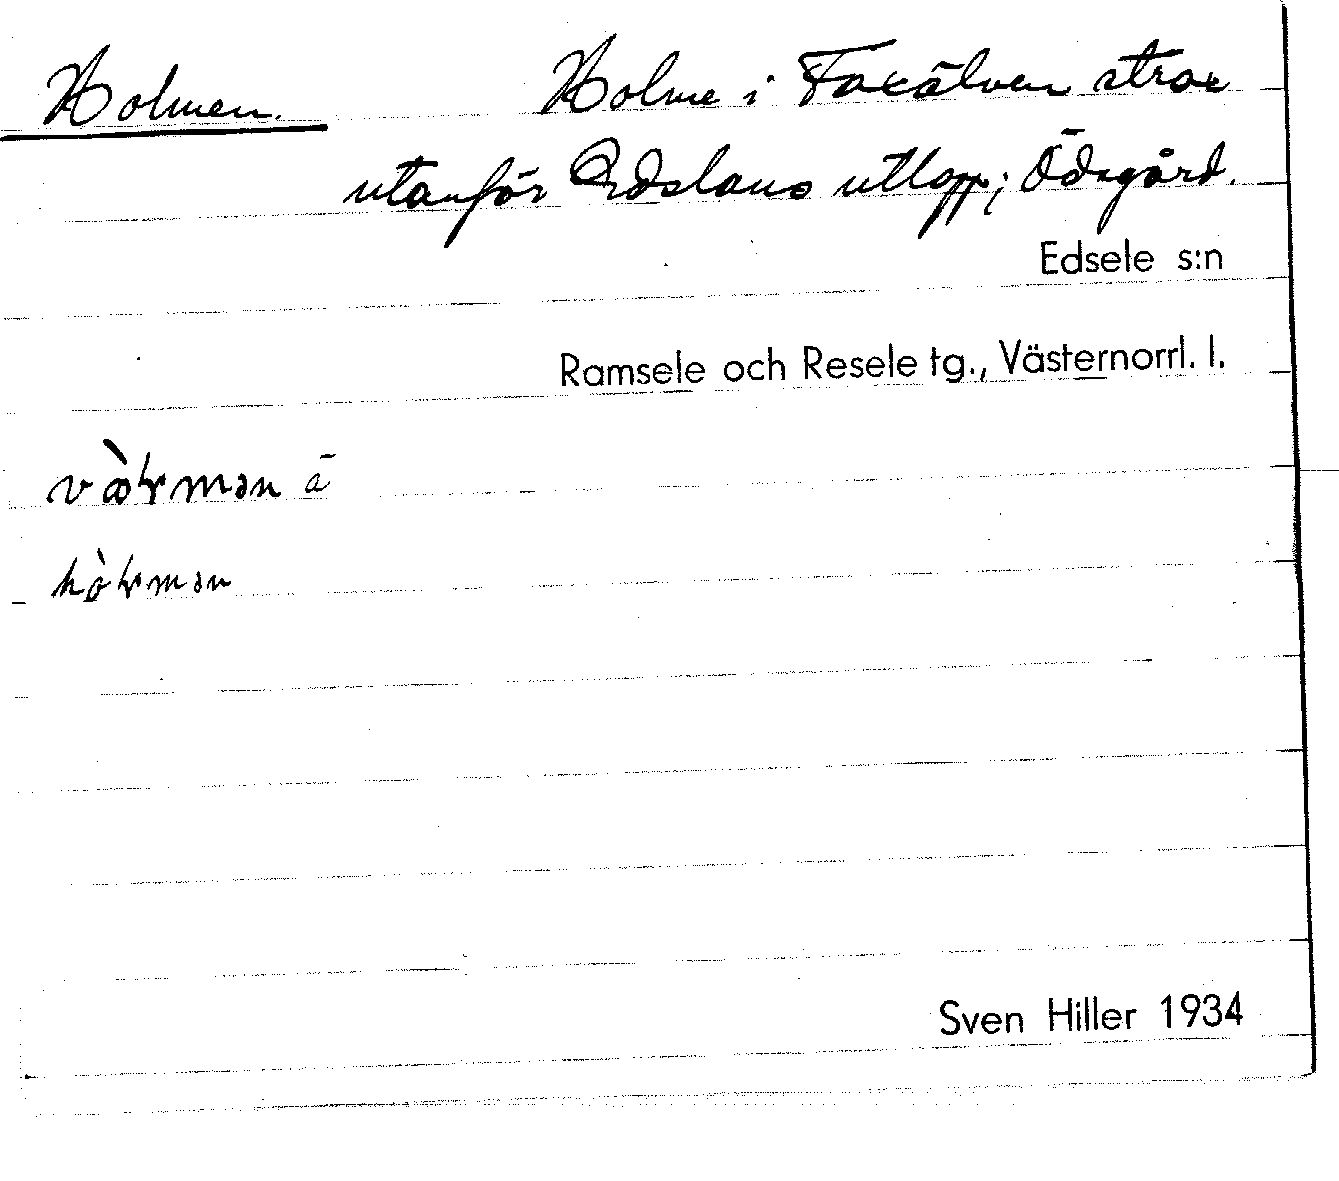 Holmen. Holme i Faxälven strax
utanför Edslans utlopp; Ödsgård.
Edsele s:n
Ramsele och Resele tg., Västernorrl. l.
Sven Hiller 1934